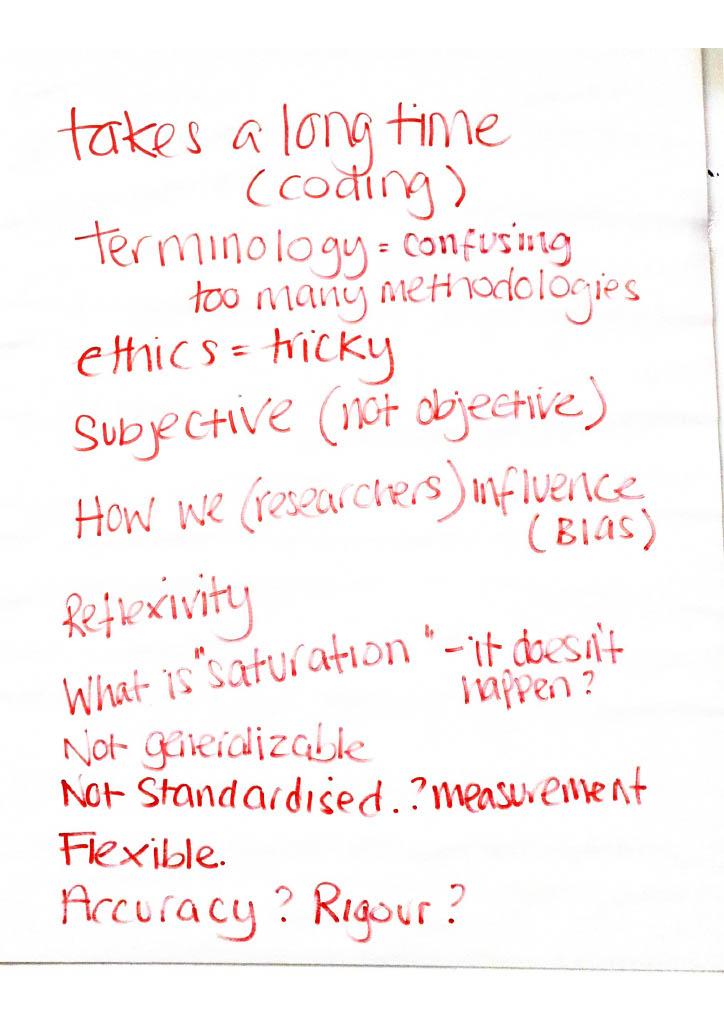 takes a long time
(coding)
terminology = confusing
too many methodologies
ethics = tricky
Subjective (not objective)
How we (researchers) influence
(BIAS)
Reflexivity
What is "saturation" - it doesn't
happen?
Not generalizable
Not Standardised. ? measurement
Flexible.
Accuracy? Rigour?